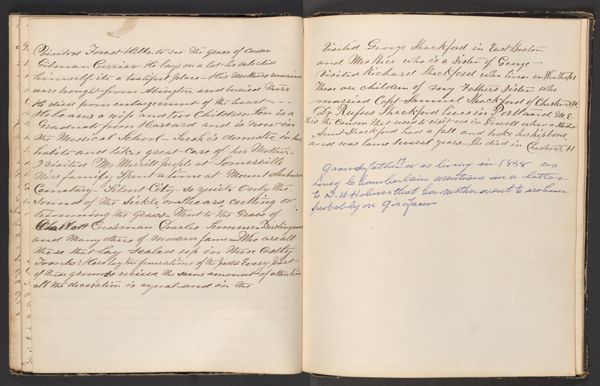 Visited Forest Hills to see the grave of Cousin
Gilman Currier He lay on a lot he selected
himself its a beautiful place - His Mothers remains
were brought from Abington and buried there
He died from enlargement of the heart
He leaves a wife and two Children One is a
Graduate from Harvard and is now in
the Medical School. Sarah is domestic in her
habits and takes great care of her Mother
I visited Mr Merrill people at Somerville
Nice family Spent a time at Mount Auburn
Cemetery Silent City. so quiet Only the
sound of the Sickle or shears cutting or
trimming the Grass Went to the Graves of
Charlotte Cushman Charles Sumner Burlingame
and Many others of modern fame Who are all
these that lay Sealed up in their Costly
Tombs Here lay the generations of the past Every part
of these grounds receive the same amount of attention
all the decoration is equal and in the
Visited George Shackford in East Boston
and Mrs Rice who is a Sister of George
Visited Richard Shackford who lives in Winthrop
These are children of my Fathers Sister who
married Capt Samuel Shackford of Chester N.H
Dr Rufus Shackford lives in Portland M.E.
Aunt Shackford had a fall and broke her hip bone
and was lame several years She died in Chester N H
Grandfather was living in 1838 as
Chamberlain mentions in a letter
to D. W Holmes that her mother went to see him
probably on Gr's farm